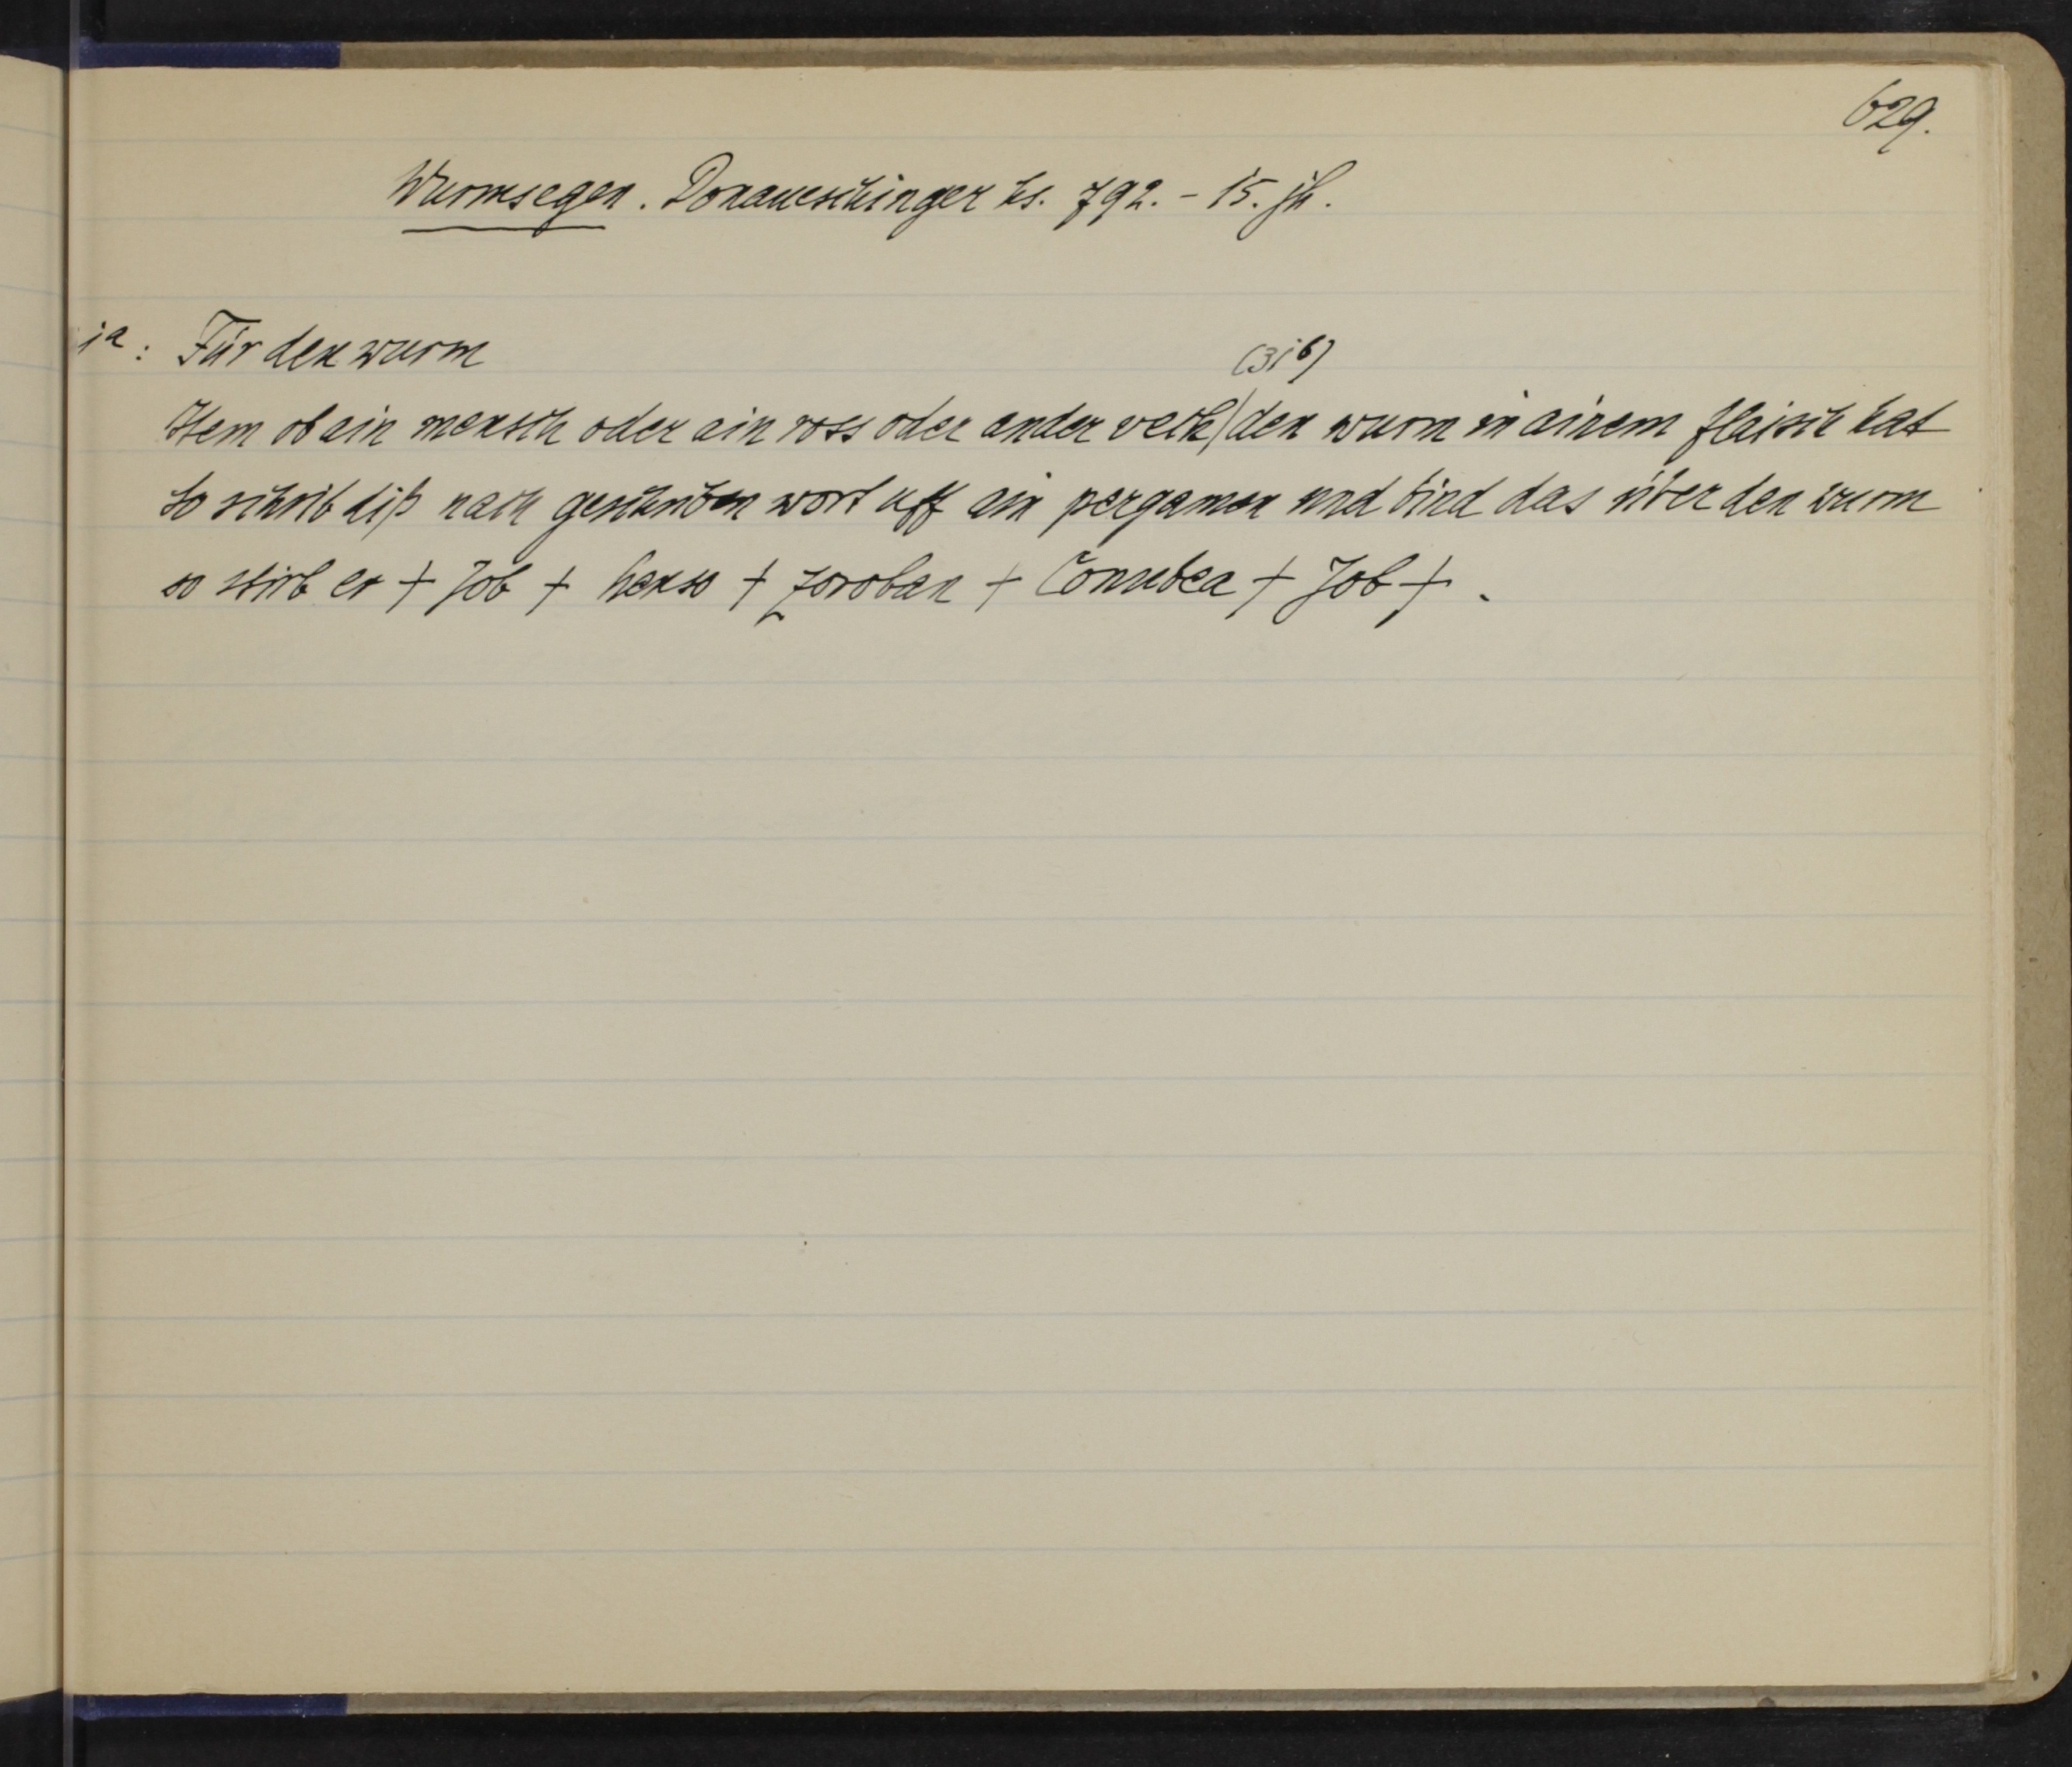 629.
Wurmsegen. Donaueschinger hs. 792. - 15. jh.
1a: Für den wurm
(31b)
Item ob ain mensch oder ain ross oder ander vech) den wurm in ainem flaisch hat
so schrib diß nach geschriben wort uff ain pergamen und bind das über den wurm
so stirb er + Job + hanso + zoroban + Connubea + Job + .